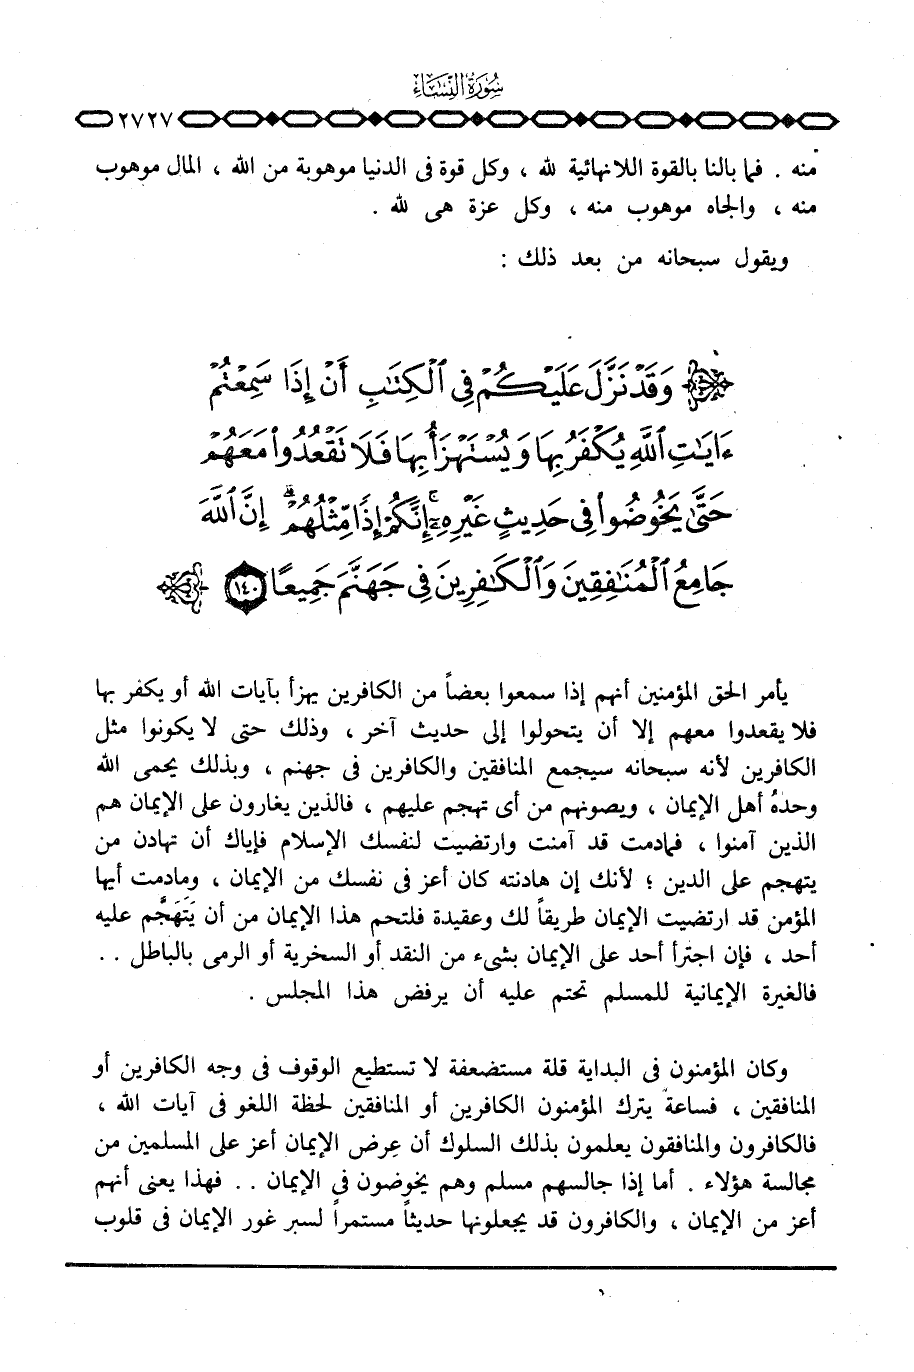 سُورَةُ النِّسَاءِ
٢٧٢٧
منه . فما بالنا بالقوة اللانهائية لله ، وكل قوة فى الدنيا موهوبة من الله ، المال موهوب
منه ، والجاه موهوب منه ، وكل عزة هى لله .
ويقول سبحانه من بعد ذلك :
وَقَدْ نَزَّلَ عَلَيْكُمْ فِي ٱلْكِتَٰبِ أَنْ إِذَا سَمِعْتُمْ
ءَايَٰتِ ٱللَّهِ يُكْفَرُ بِهَا وَيُسْتَهْزَأُ بِهَا فَلَا تَقْعُدُوا۟ مَعَهُمْ
حَتَّىٰ يَخُوضُوا۟ فِي حَدِيثٍ غَيْرِهِۦٓ ۚ إِنَّكُمْ إِذًا مِّثْلُهُمْ ۗ إِنَّ ٱللَّهَ
جَامِعُ ٱلْمُنَٰفِقِينَ وَٱلْكَٰفِرِينَ فِي جَهَنَّمَ جَمِيعًا ١٤٠
يأمر الحق المؤمنين أنهم إذا سمعوا بعضاً من الكافرين يهزأ بآيات الله أو يكفر بها
فلا يقعدوا معهم إلا أن يتحولوا إلى حديث آخر ، وذلك حتى لا يكونوا مثل
الكافرين لأنه سبحانه سيجمع المنافقين والكافرين فى جهنم ، وبذلك يحمى الله
وحدةُ أهل الإيمان ، ويصونهم من أى تهجم عليهم ، فالذين يغارون على الإيمان هم
الذين آمنوا ، فمادمت قد آمنت وارتضيت لنفسك الإسلام فإياك أن تهادن من
يتهجم على الدين ؛ لأنك إن هادنته كان أعز فى نفسك من الإيمان ، ومادمت أيها
المؤمن قد ارتضيت الإيمان طريقاً لك وعقيدة فلتحم هذا الإيمان من أن يَتَهَجَّم عليه
أحد ، فإن اجترأ أحد على الإيمان بشىء من النقد أو السخرية أو الرمى بالباطل . .
فالغيرة الإيمانية للمسلم تحتم عليه أن يرفض هذا المجلس .
وكان المؤمنون فى البداية قلة مستضعفة لا تستطيع الوقوف فى وجه الكافرين أو
المنافقين ، فساعة يترك المؤمنون الكافرين أو المنافقين لحظة اللغو فى آيات الله ،
فالكافرون والمنافقون يعلمون بذلك السلوك أن عِرض الإيمان أعز على المسلمين من
مجالسة هؤلاء . أما إذا جالسهم مسلم وهم يخوضون فى الإيمان . . فهذا يعنى أنهم
أعز من الإيمان ، والكافرون قد يجعلونها حديثاً مستمراً لسبر غور الإيمان فى قلوب